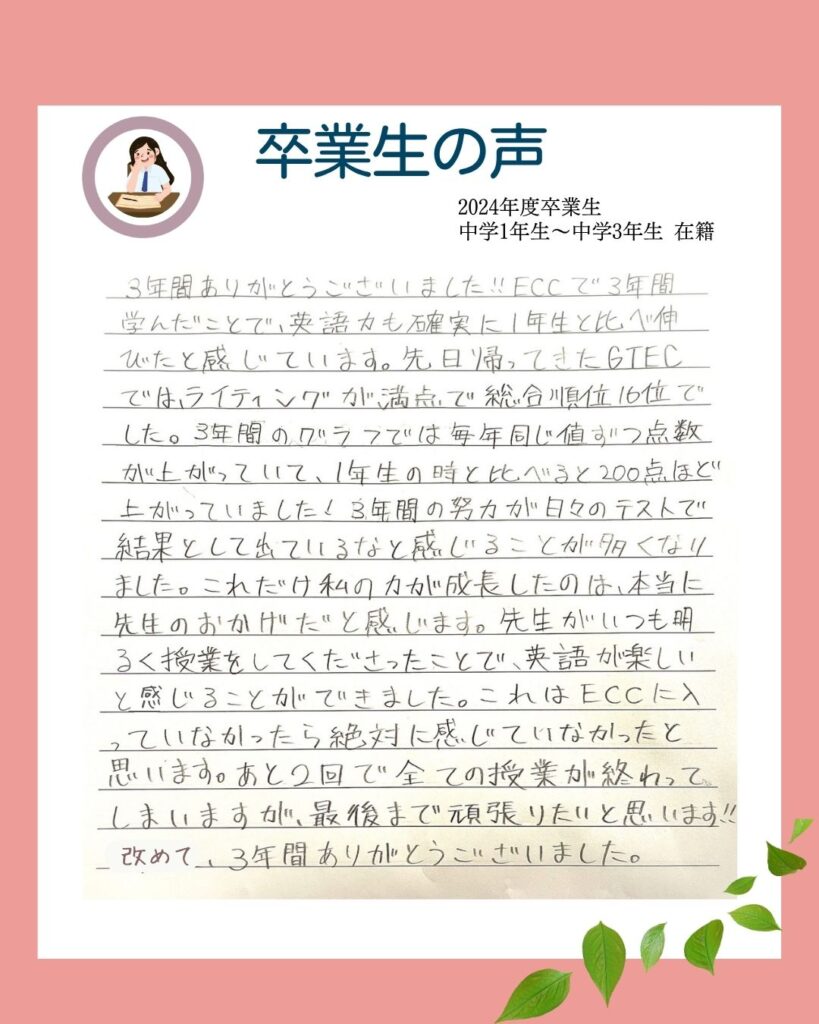 卒業生の声
2024年度卒業生
中学1年生～中学3年生 在籍
3年間ありがとうございました!!ECCで3年間
学んだことで、英語力も確実に1年生と比べ伸
びたと感じています。先日帰ってきたGTEC
では、ライティングが満点で総合順位16位で
した。3年間のグラフでは毎年同じ値ずつ点数
が上がっていて、1年生の時と比べると200点ほど
上がっていました!3年間の努力が日々のテストで
結果として出ているなと感じることが多くなり
ました。これだけ私の力が成長したのは、本当に
先生のおかげだと感じます。先生がいつも明
るく授業をしてくださったことで、英語が楽しい
と感じることができました。これはECCに入
っていなかったら絶対に感じていなかったと
思います。あと2回で全ての授業が終わって
しまいますが、最後まで頑張りたいと思います!!
改めて、3年間ありがとうございました。